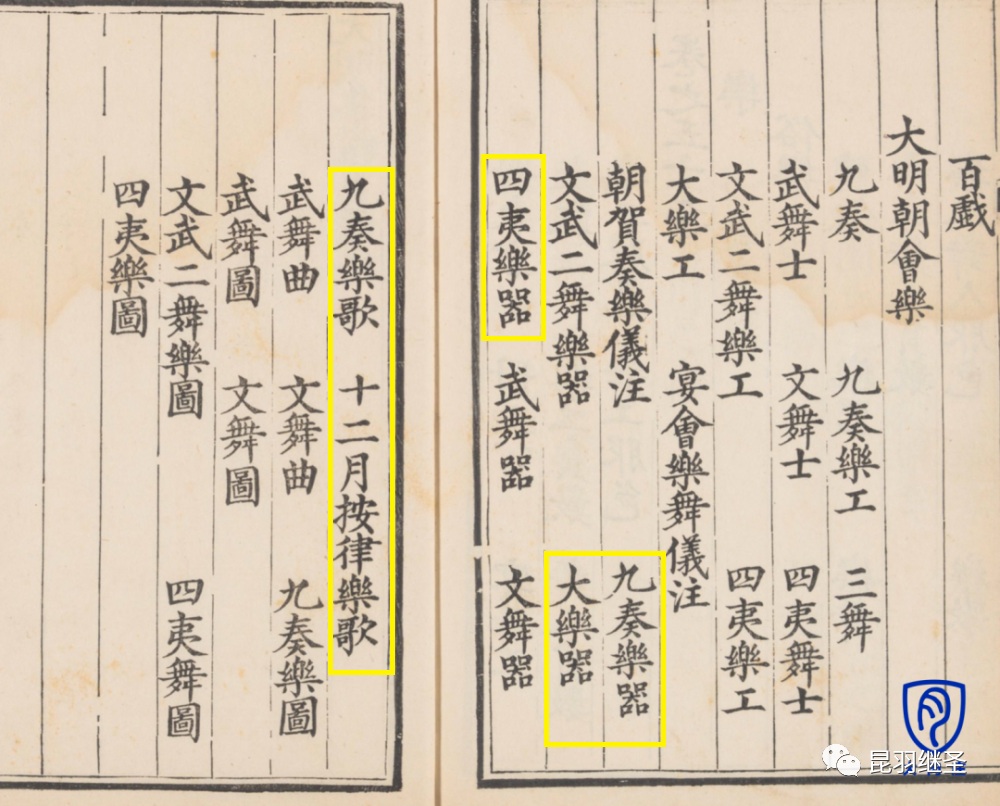 百戲
大明朝會樂
九奏 九奏樂工 三舞
武舞士 文舞士 四夷舞士
文武二舞樂工 四夷樂工
大樂工 宴會樂舞儀注
朝賀奏樂儀注 九奏樂器
文武二舞樂器 大樂器
四夷樂器 武舞器 文舞器
九奏樂歌 十二月按律樂歌
武舞曲 文舞曲 九奏樂圖
武舞圖 文舞圖
文武二舞樂圖 四夷舞圖
四夷樂圖
昆羽继圣